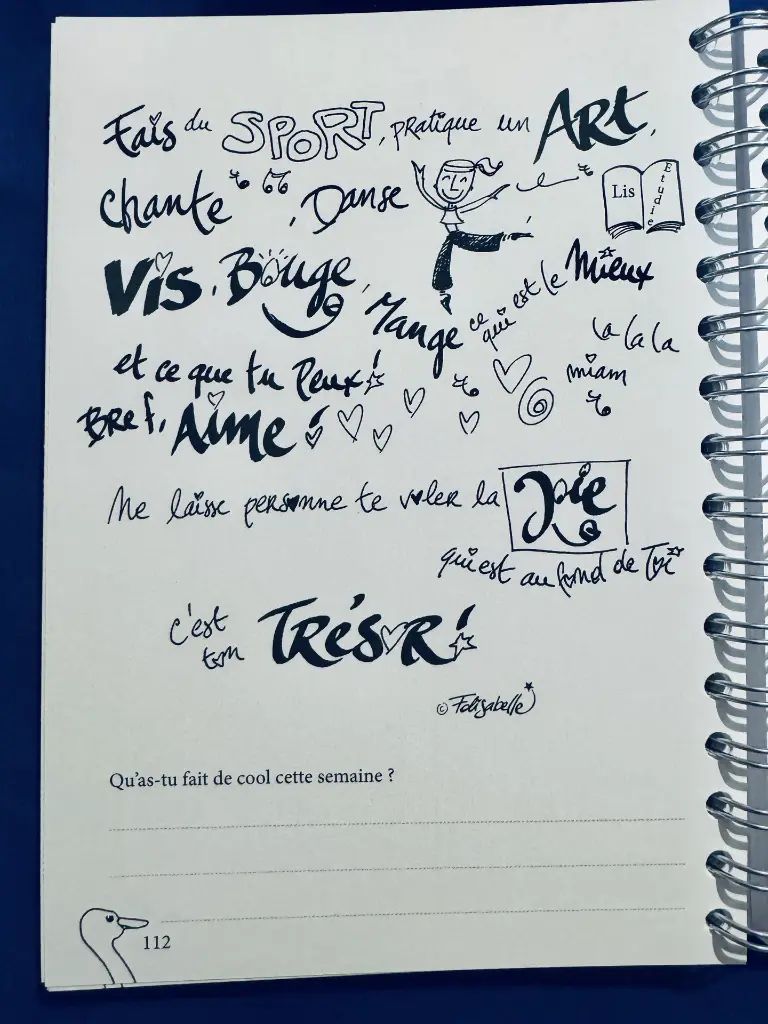 Fais du SPORT, pratique un ART,
Chante, Danse
Lis Etudie
Vis, Bouge, Mange ce qui est le Mieux
et ce que tu Peux !
la la la
miam
Bref, Aime !
Ne laisse personne te voler la Joie
qui est au fond de Toi
c'est ton TRÉSOR !
© Folisabelle
Qu'as-tu fait de cool cette semaine ?
112